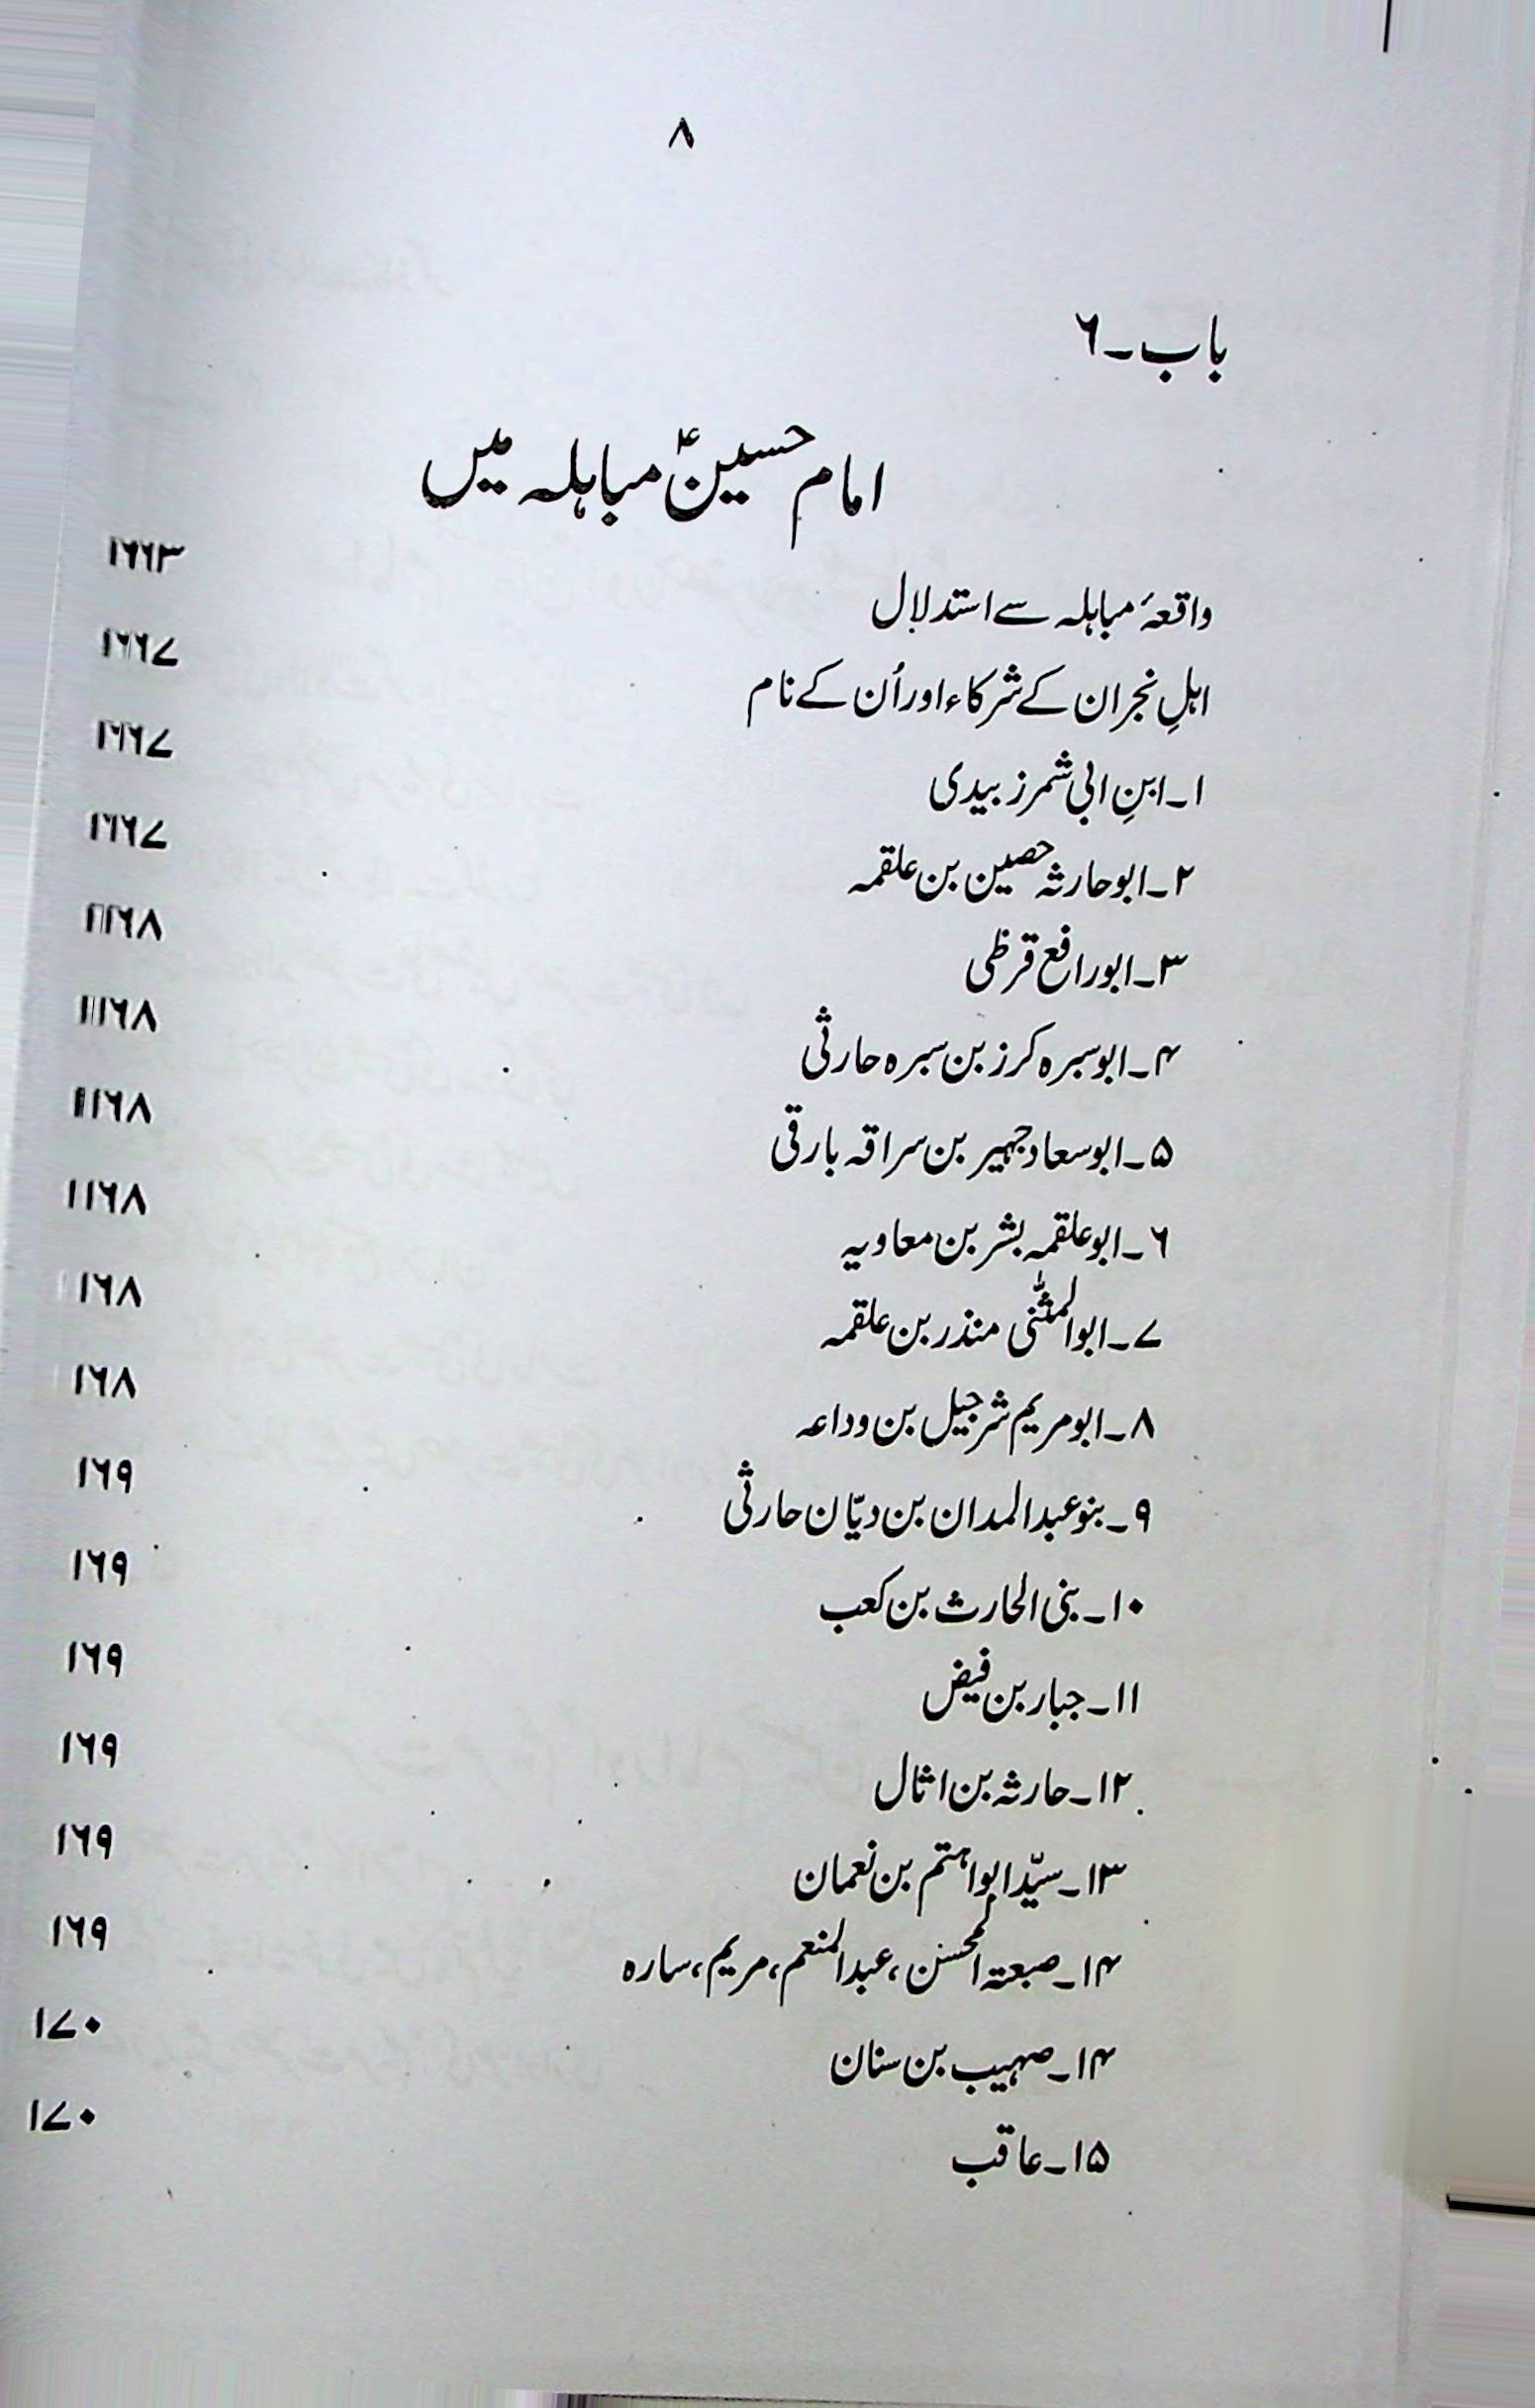 ۸
باب۔۶
امام حسینؑ مباہلہ میں
واقعۂ مباہلہ سے استدلال ۱۶۳
اہلِ نجران کے شرکاء اور اُن کے نام ۱۶۷
۱۔ابنِ ابی شمر زبیدی ۱۶۷
۲۔ابو حارثہ حصین بن علقمہ ۱۶۷
۳۔ابو رافع قرظی ۱۶۸
۴۔ابو سبرہ کرز بن سبرہ حارثی ۱۶۸
۵۔ابو سعاد جہیر بن سراقہ بارقی ۱۶۸
۶۔ابو علقمہ بشر بن معاویہ ۱۶۸
۷۔ابو المثنّٰی منذر بن علقمہ ۱۶۸
۸۔ابو مریم شرجیل بن وداعہ ۱۶۸
۹۔بنو عبد المدان بن دیّان حارثی ۱۶۹
۱۰۔بنی الحارث بن کعب ۱۶۹
۱۱۔جبار بن فیض ۱۶۹
۱۲۔حارثہ بن اثال ۱۶۹
۱۳۔سیّد ابو اہتم بن نعمان ۱۶۹
۱۴۔صبعتہ المحسن، عبد المنعم، مریم، سارہ ۱۶۹
۱۴۔صہیب بن سنان ۱۷۰
۱۵۔عاقب ۱۷۰